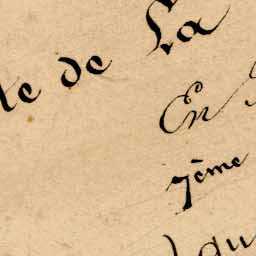 te de La
En
7ème